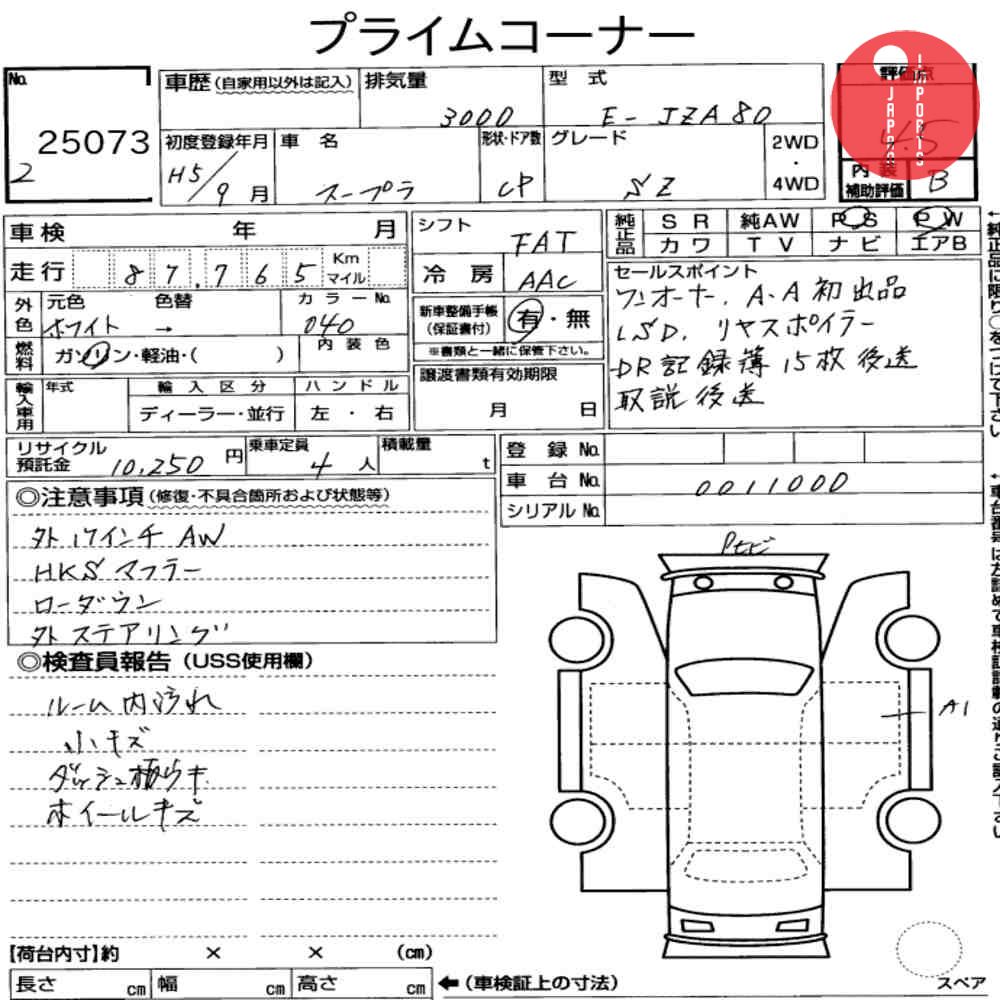 プライムコーナー
No.
25073
2
車歴(自家用以外は記入)
排気量
3000
型 式
E-JZA80
評価点
4.5
JAPAN
IMPORTS
初度登録年月
H5/9月
車 名
スープラ
形状・ドア数
CP
グレード
SZ
2WD
・
4WD
内 装
補助評価
B
車検 年 月
走行 87,765 Km マイル
シフト
FAT
冷 房
AAC
純正品
SR 純AW PS PW
カワ TV ナビ エアB
外色
元色
ホワイト
色替
→
カラーNo.
040
燃料
ガソリン・軽油・( )
内装色
新車整備手帳
(保証書付)
有・無
※書類と一緒に保管下さい。
セールスポイント
ワンオーナー、A・A初出品
LSD、リヤスポイラー
DR記録簿15枚後送
取説後送
輸入車用
年式
輸入区分
ディーラー・並行
ハンドル
左・右
譲渡書類有効期限
月 日
リサイクル
預託金
10,250円
乗車定員
4人
積載量
t
登 録 No.
車 台 No.
0011000
シリアル No.
◎注意事項(修復・不具合箇所および状態等)
外17インチAW
HKSマフラー
ローダウン
外ステアリング
◎検査員報告(USS使用欄)
ルーム内汚れ
小キズ
ホイールキズ
A1
【荷台内寸】約 × × (cm)
長さ cm 幅 cm 高さ cm ←(車検証上の寸法)
スペア
←純正品に限り○をつけて下さい